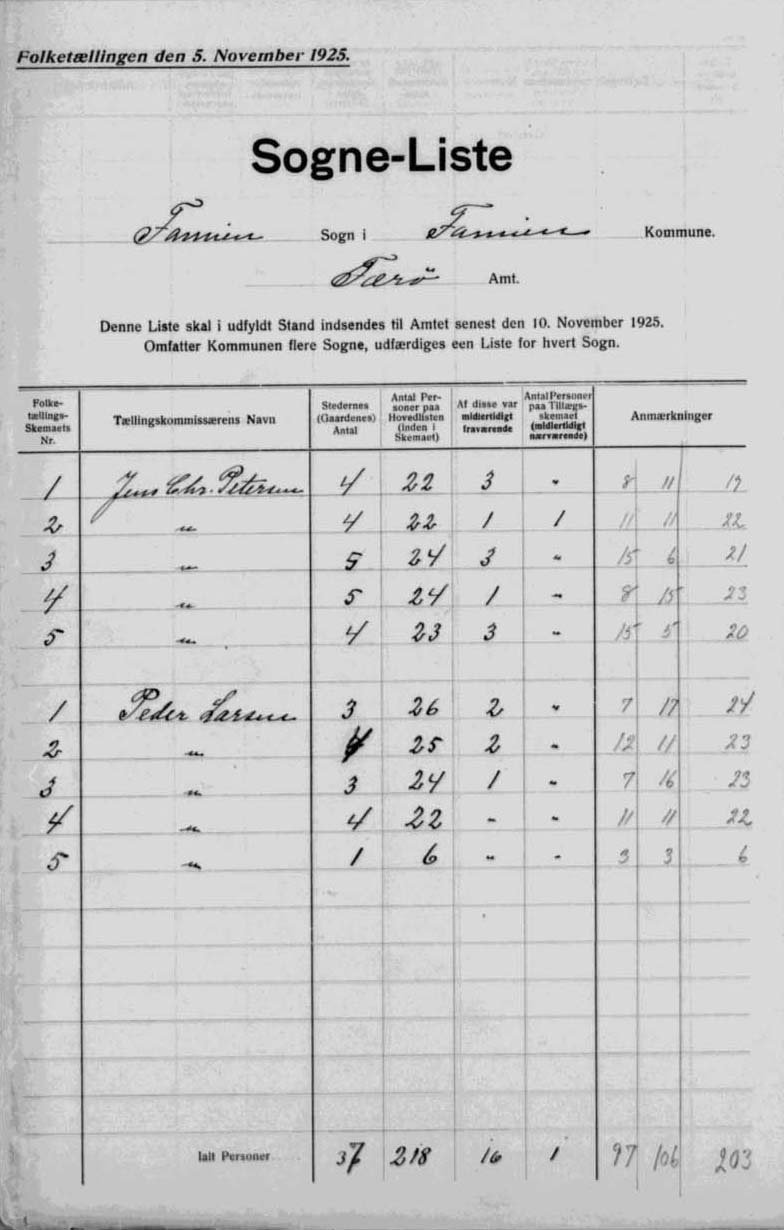 Folketællingen den 5. November 1925.
Sogne-Liste
Famien Sogn i Famien Kommune.
Færø Amt.
Denne Liste skal i udfyldt Stand indsendes til Amtet senest den 10. November 1925.
Omfatter Kommunen flere Sogne, udfærdiges een Liste for hvert Sogn.
Folke-
tællings-
Skemaets
Nr.
Tællingskommissærens Navn
Stedernes
(Gaardenes)
Antal
Antal Per-
soner paa
Hovedlisten
(inden i
Skemaet)
Af disse var
midlertidigt
fraværende
Antal Personer
paa Tillægs-
skemaet
(midlertidigt
nærværende)
Anmærkninger
1 Jens Chr. Petersen 4 22 3 " 8 11 19
2 " 4 22 1 1 11 11 22
3 " 5 24 3 " 15 6 21
4 " 5 24 1 " 8 15 23
5 " 4 23 3 " 15 5 20
1 Peder Larsen 3 26 2 " 7 17 24
2 " 4 25 2 " 12 11 23
3 " 3 24 1 " 7 16 23
4 " 4 22 " " 11 11 22
5 " 1 6 " " 3 3 6
Ialt Personer 37 218 16 1 97 106 203